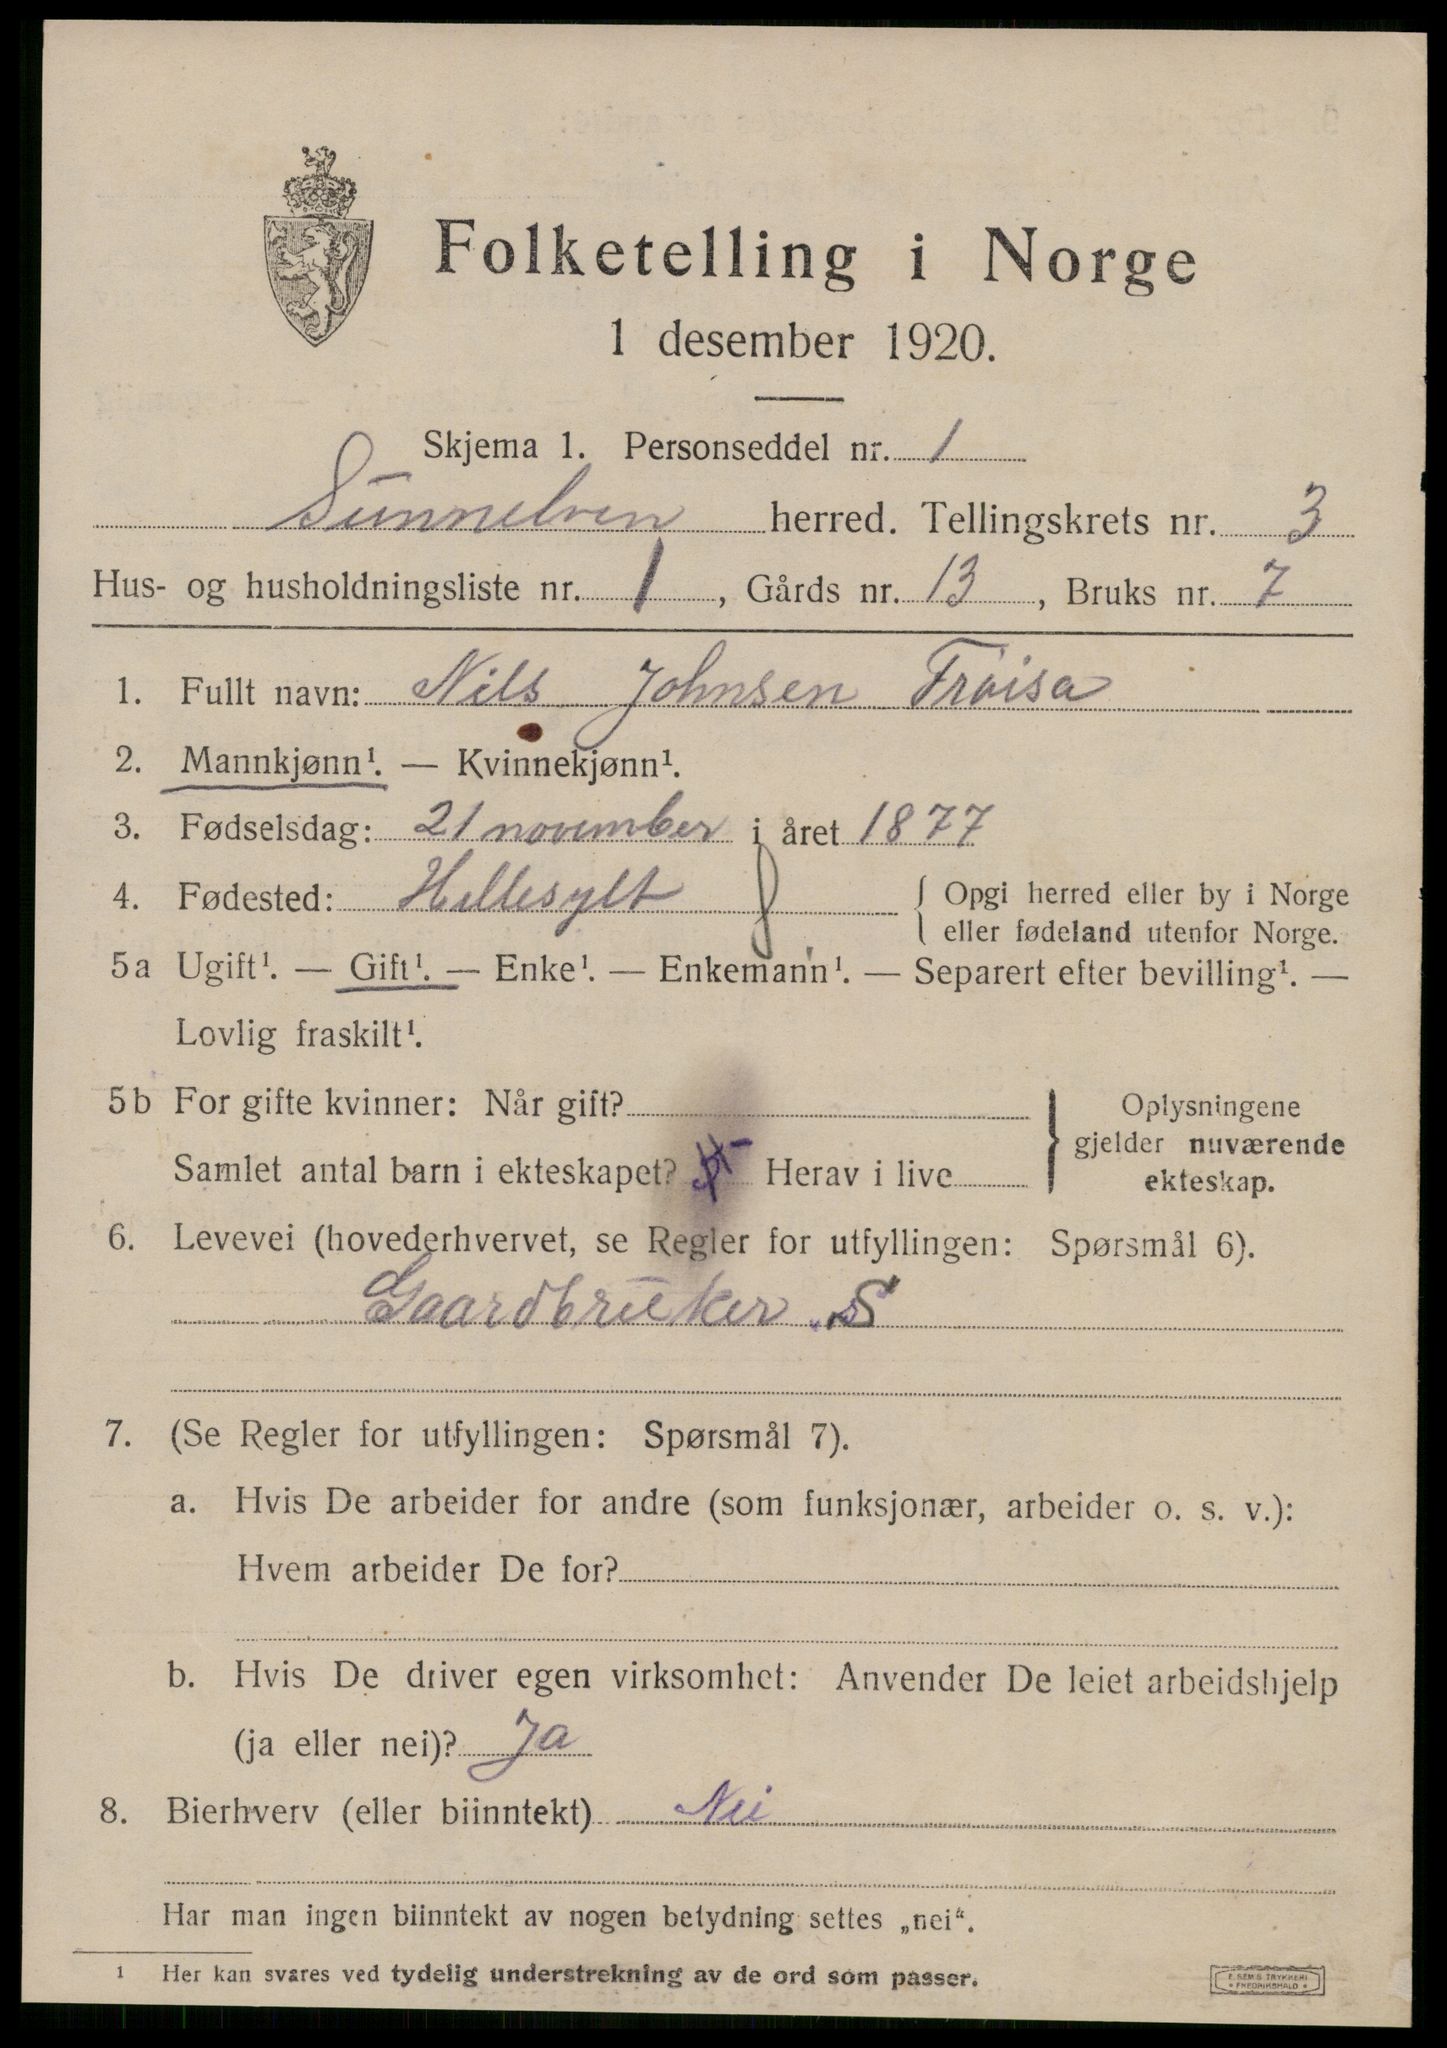 Folketelling i Norge
1 desember 1920.
Skjema 1. Personseddel nr. 1
Sunnelven herred. Tellingskrets nr. 3
Hus- og husholdningsliste nr. 1, Gårds nr. 13, Bruks nr. 7
1. Fullt navn: Nils Johnsen Frøisa
2. Mannkjønn¹. — Kvinnekjønn¹.
3. Fødselsdag: 21 november i året 1877
4. Fødested: Hellesylt { Opgi herred eller by i Norge
eller fødeland utenfor Norge.
5a Ugift¹. — Gift¹. — Enke¹. — Enkemann¹. — Separert efter bevilling¹. —
Lovlig fraskilt¹.
5b For gifte kvinner: Når gift?
Samlet antal barn i ekteskapet? Herav i live
} Oplysningene
gjelder nuværende
ekteskap.
6. Levevei (hovederhvervet, se Regler for utfyllingen: Spørsmål 6).
Gaardbruker S
7. (Se Regler for utfyllingen: Spørsmål 7).
a. Hvis De arbeider for andre (som funksjonær, arbeider o. s. v.):
Hvem arbeider De for?
b. Hvis De driver egen virksomhet: Anvender De leiet arbeidshjelp
(ja eller nei)? Ja
8. Bierhverv (eller biinntekt) Nei
Har man ingen biinntekt av nogen betydning settes „nei“.
¹ Her kan svares ved tydelig understrekning av de ord som passer.
E. SEM'S TRYKKERI
• FREDRIKSHALD •